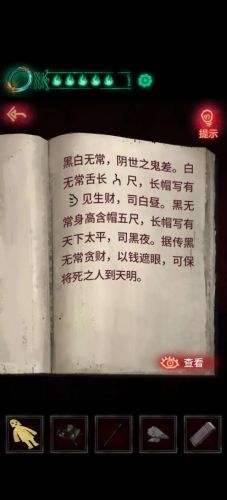 提示
黑白无常，阴世之鬼差。白
无常舌长 尺，长帽写有
见生财，司白昼。黑无
常身高含帽五尺，长帽写有
天下太平，司黑夜。据传黑
无常贪财，以钱遮眼，可保
将死之人到天明。
查看